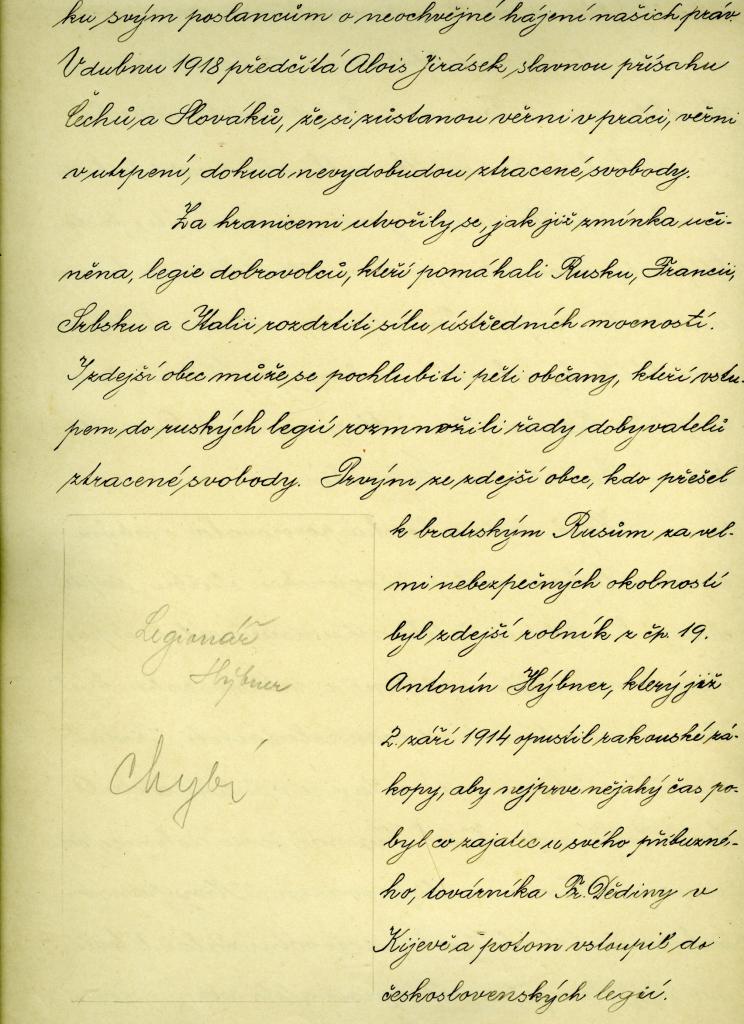 ku svým poslancům o neochvějné hájení našich práv.
V dubnu 1918 předčítá Alois Jirásek slavnou přísahu
Čechů a Slováků, že si zůstanou věrni v práci, věrni
v utrpení, dokud nevydobudou ztracené svobody.
Za hranicemi utvořily se, jak již zmínka uči-
něna, legie dobrovolců, kteří pomáhali Rusku, Francii,
Srbsku a Italii rozdrtiti sílu ústředních mocností.
I zdejší obec může se pochlubiti pěti občany, kteří vstu-
pem do ruských legií rozmnožili řady dobyvatelů
ztracené svobody. Prvým ze zdejší obce, kdo přešel
k bratrským Rusům za vel-
mi nebezpečných okolností
byl zdejší rolník z čp. 19.
Antonín Hýbner, který již
2. září 1914 opustil rakouské zá-
kopy, aby nejprve nějaký čas po-
byl co zajatec u svého příbuzné-
ho, továrníka Fr. Dědiny v
Kijevě a potom vstoupil do
československých legií.
Legionář
Hýbner
Chybí